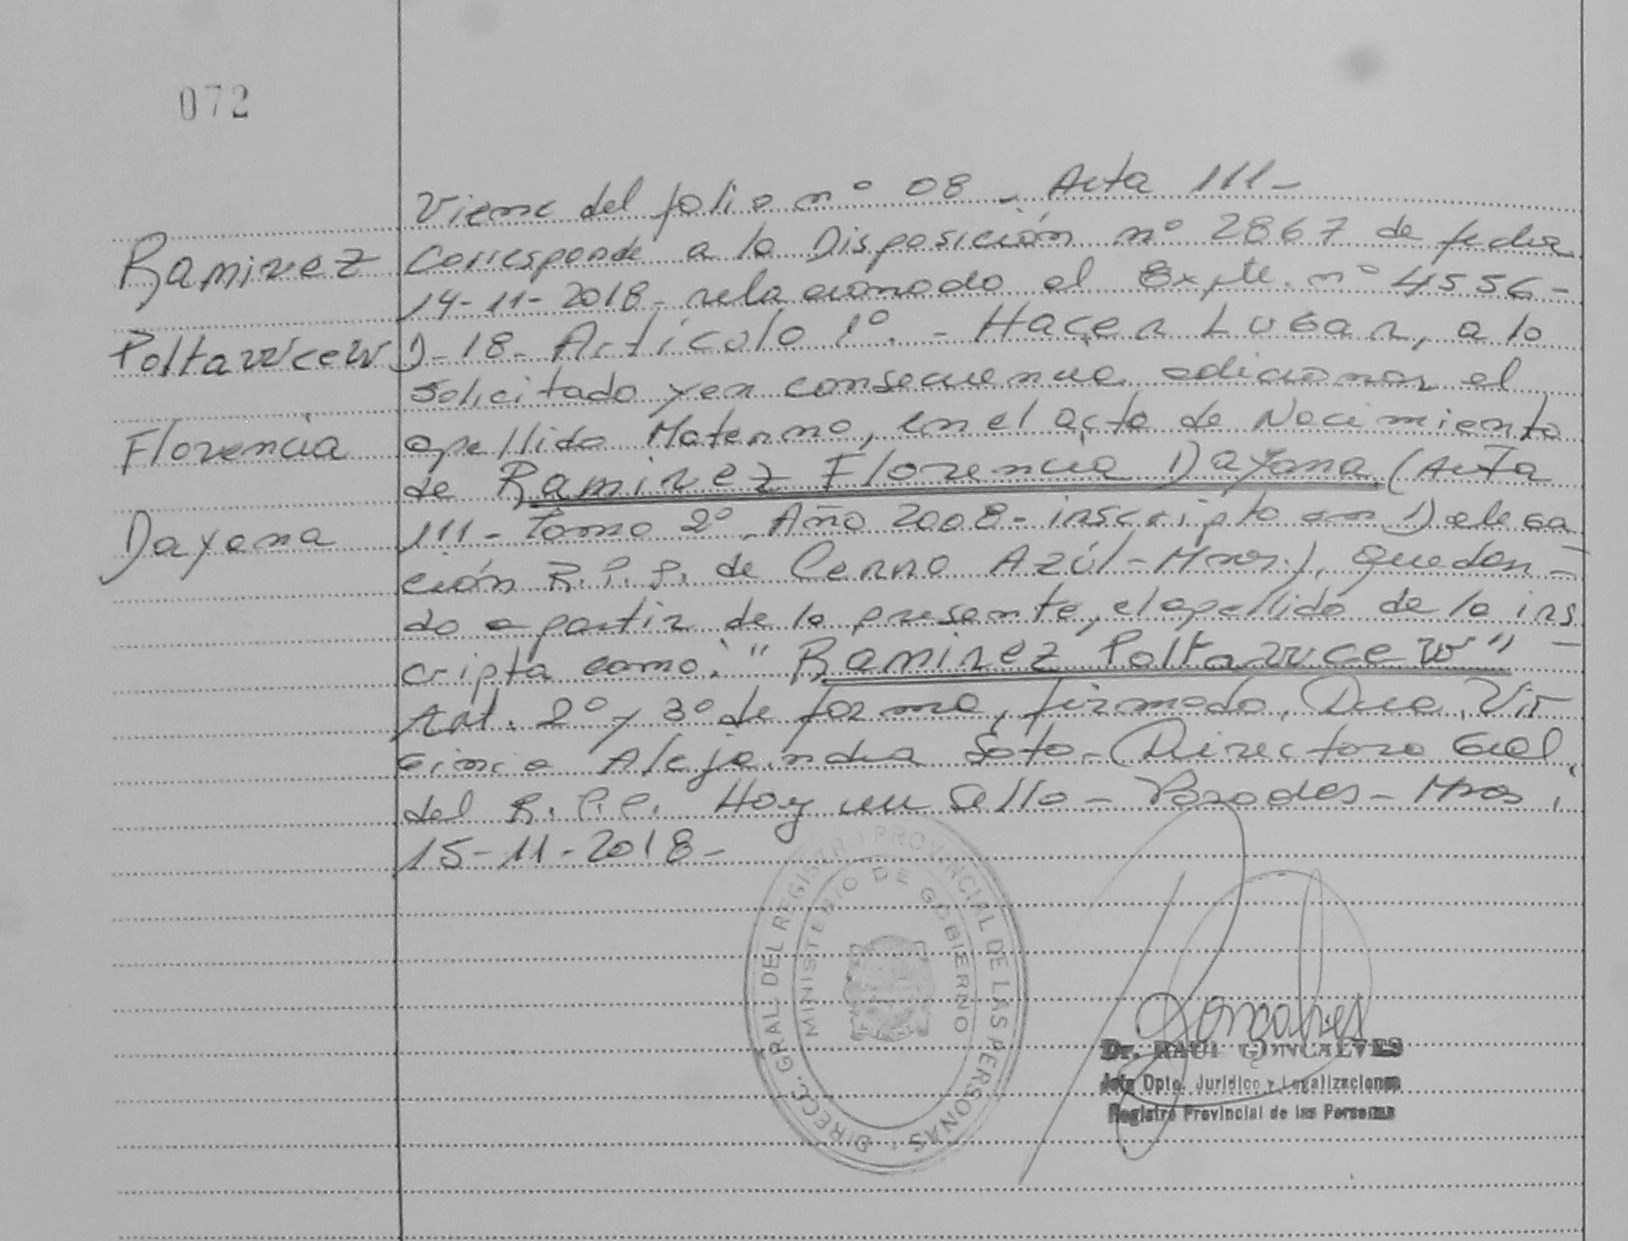 072
Viene del folio nº 08 - Acta 111-
Ramirez
Corresponde a la Disposición nº 2867 de fecha
14-11-2018- relacionado al Expte. nº 4556-
Poltawcew
D-18- Artículo 1º.- Hacer Lugar, a lo
solicitado y en consecuencia adicionar el
Florencia
apellido Materno, en el acta de Nacimiento
de Ramirez Florencia Dayana (Acta
Dayana
111- Tomo 2º- Año 2008- inscripta en Delega
ción R.P.P. de Cerro Azúl- Mnes.), quedan-
do a partir de la presente, el apellido de la ins
cripta como: "Ramirez Poltawcew" -
Art. 2º y 3º de forma, firmado, Dra. Vir
ginia Alejandra Soto- Directora Gral.
del R.P.P. Hay un Sello - Posadas- Mnes.
15-11-2018-
DIRECC. GRAL. DEL REGISTRO PROVINCIAL DE LAS PERSONAS
MINISTERIO DE GOBIERNO
Goncalves
Dr. RAUL GONCALVES
Jefe Dpto. Jurídico y Legalizaciones
Registro Provincial de las Personas